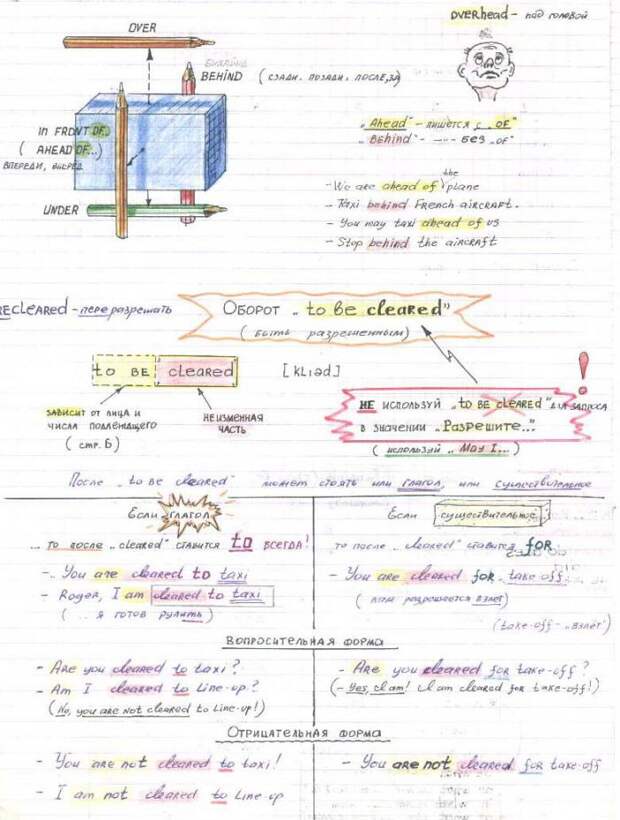 OVER
overhead - над головой
BEHIND (сзади, позади, после, за)
IN FRONT OF..
( AHEAD OF...)
ВПЕРЕДИ, ВПЕРЕД
UNDER
"Ahead" - пишется "... OF"
"Behind" - --- без "OF"
- We are ahead of the plane
- Taxi behind French aircraft.
- You may taxi ahead of us
- Stop behind the aircraft
RECLEARED - переразрешать
Оборот "to be cleared"
( быть разрешенным)
to BE cleared [klıəd]
ЗАВИСИТ ОТ ЛИЦА И
ЧИСЛА ПОДЛЕЖАЩЕГО
(стр. 6)
НЕИЗМЕННАЯ
ЧАСТЬ
!
НЕ используй "to BE cleared" для запроса
в значении "Разрешите..."
( используй "May I...)
После "to be cleared" может стоять или глагол, или существительное
Если глагол
... то после "cleared" ставится to всегда!
- You are cleared to taxi
- Roger, I am cleared to taxi
(... я готов рулить)
Если существительное
то после "cleared" ставится for
- You are cleared for take-off
( вам разрешается взлет)
(take-off - "взлет")
Вопросительная форма
- Are you cleared to taxi?
- Am I cleared to line-up?
(No, you are not cleared to line-up!)
- Are you cleared for take-off?
(- Yes, I am! I am cleared for take-off!)
Отрицательная форма
- You are not cleared to taxi!
- I am not cleared to line-up
- You are not cleared for take-off